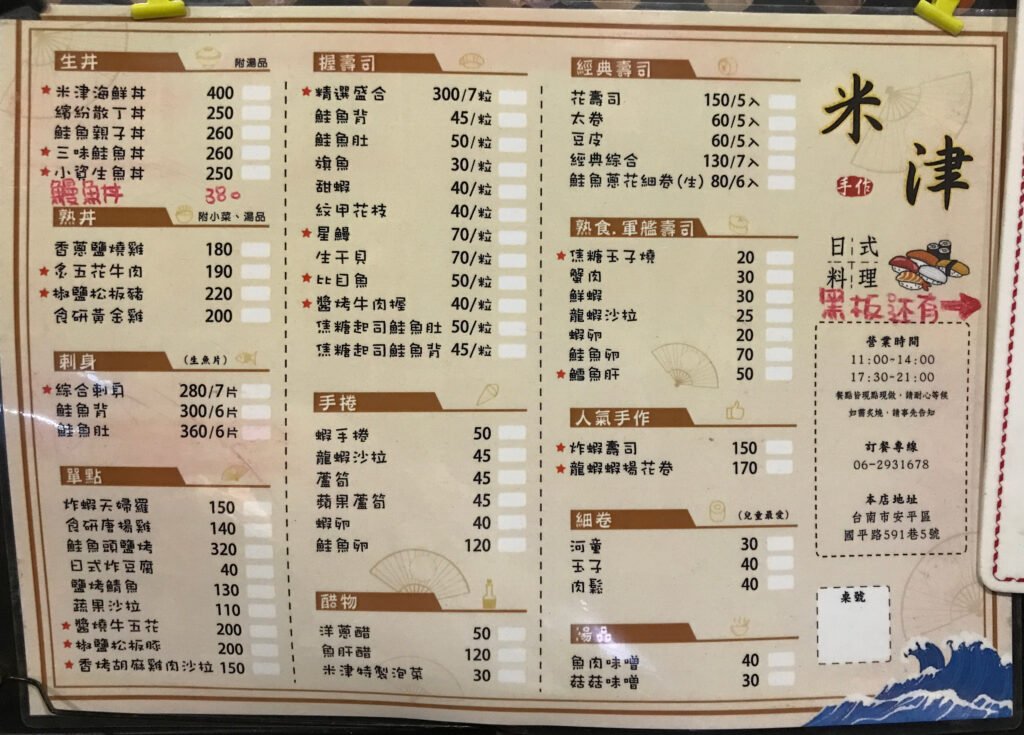 生丼 附湯品
★米津海鮮丼 400
繽紛散丁丼 250
鮭魚親子丼 260
★三味鮭魚丼 260
★小資生魚丼 250
鰻魚丼 380
熟丼 附小菜、湯品
香蔥鹽燒雞 180
★炙五花牛肉 190
★椒鹽松板豬 220
食研黃金雞 200
刺身 (生魚片)
★綜合刺身 280/7片
鮭魚背 300/6片
鮭魚肚 360/6片
單點
炸蝦天婦羅 150
食研唐揚雞 140
鮭魚頭鹽烤 320
日式炸豆腐 40
鹽烤鯖魚 130
蔬果沙拉 110
★醬燒牛五花 200
★椒鹽松板豚 200
★香烤胡麻雞肉沙拉 150
握壽司
★精選盛合 300/7粒
鮭魚背 45/粒
鮭魚肚 50/粒
旗魚 30/粒
甜蝦 40/粒
紋甲花枝 40/粒
★星鰻 70/粒
生干貝 70/粒
★比目魚 50/粒
★醬烤牛肉握 40/粒
焦糖起司鮭魚肚 50/粒
焦糖起司鮭魚背 45/粒
手捲
蝦手捲 50
龍蝦沙拉 45
蘆筍 45
蘋果蘆筍 45
蝦卵 40
鮭魚卵 120
醋物
洋蔥醋 50
魚肝醋 120
米津特製泡菜 30
經典壽司
花壽司 150/5入
太卷 60/5入
豆皮 60/5入
經典綜合 130/7入
鮭魚蔥花細卷(生) 80/6入
熟食.軍艦壽司
★焦糖玉子燒 20
蟹肉 30
鮮蝦 30
龍蝦沙拉 25
蝦卵 20
鮭魚卵 70
★鱈魚肝 50
人氣手作
★炸蝦壽司 150
★龍蝦蝦揚花卷 170
細卷 (兒童最愛)
河童 30
玉子 40
肉鬆 40
湯品
魚肉味噌 40
菇菇味噌 30
米津
手作
日式
料理
黑板还有→
營業時間
11:00~14:00
17:30~21:00
餐點皆現點現做，請耐心等候
如需炙燒，請事先告知
訂餐專線
06-2931678
本店地址
台南市安平區
國平路591巷5號
桌號